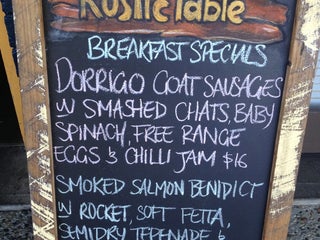 RUSTIC TABLE
BREAKFAST SPECIALS
DORRIGO GOAT SAUSAGES
W SMASHED CHATS, BABY
SPINACH, FREE RANGE
EGGS & CHILLI JAM $16
SMOKED SALMON BENIDICT
W ROCKET, SOFT FETTA,
SEMIDRY TEPENADE &